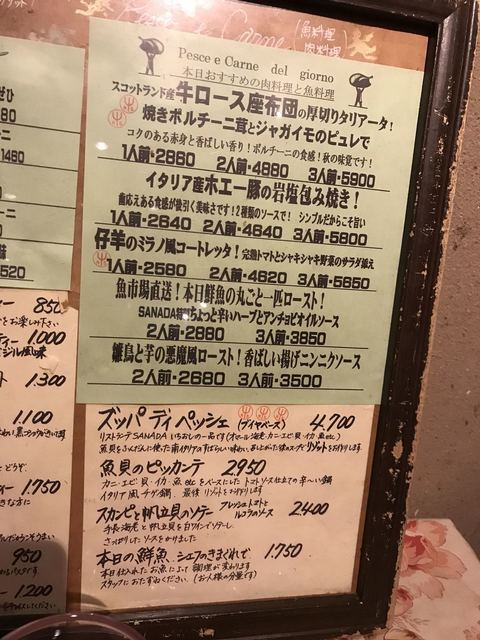 Pesce e Carne
(魚料理
肉料理)
Pesce e Carne del giorno
本日おすすめの肉料理と魚料理
スコットランド産牛ロース座布団の厚切りタリアータ!
焼きポルチーニ茸とジャガイモのピュレで
コクのある赤身と香ばしい香り!ポルチーニの食感!秋の味覚です!
1人前・2680 2人前・4880 3人前・5900
イタリア産ホエー豚の岩塩包み焼き!
歯応えある食感が後引く美味さです!2種類のソースで! シンプルだからこそ旨い
1人前・2640 2人前・4640 3人前・5800
仔羊のミラノ風コートレッタ!完熟トマトとシャキシャキ野菜のサラダ添え
1人前・2580 2人前・4620 3人前・5650
魚市場直送!本日鮮魚の丸ごと一匹ロースト!
SANADA特製ちょっと辛いハーブとアンチョビオイルソース
2人前・2880 3人前・3850
雛鳥と芋の悪魔風ロースト!香ばしい揚げニンニクソース
2人前・2680 3人前・3500
ズッパ ディ ペッシェ (ブイヤベース) 4.700
リストランテ SANADA いちおしの一品です(オマール海老・カニ・エビ・貝・イカ・魚 etc)
魚貝のピッカンテ 2950
カニ・エビ・貝・イカ・魚 etc をベースにした トマトソース仕立ての 辛〜い鍋
イタリア風 チゲ鍋 最後 リゾットをお作りします
スカンピと帆立貝のソテー フレッシュトマトとルコラのソース 2400
手長海老と帆立貝を白ワインでソテーし
さっぱりしたソースをかけました
本日の鮮魚 シェフのきまぐれで 1.750
本日仕入れたお魚によって調理が変わります
スタッフにおたずねください。(お1人様の分量です)
1480
520
850
をお楽しみ下さい
1.000
1.300
1.100
1.750
950
1.200